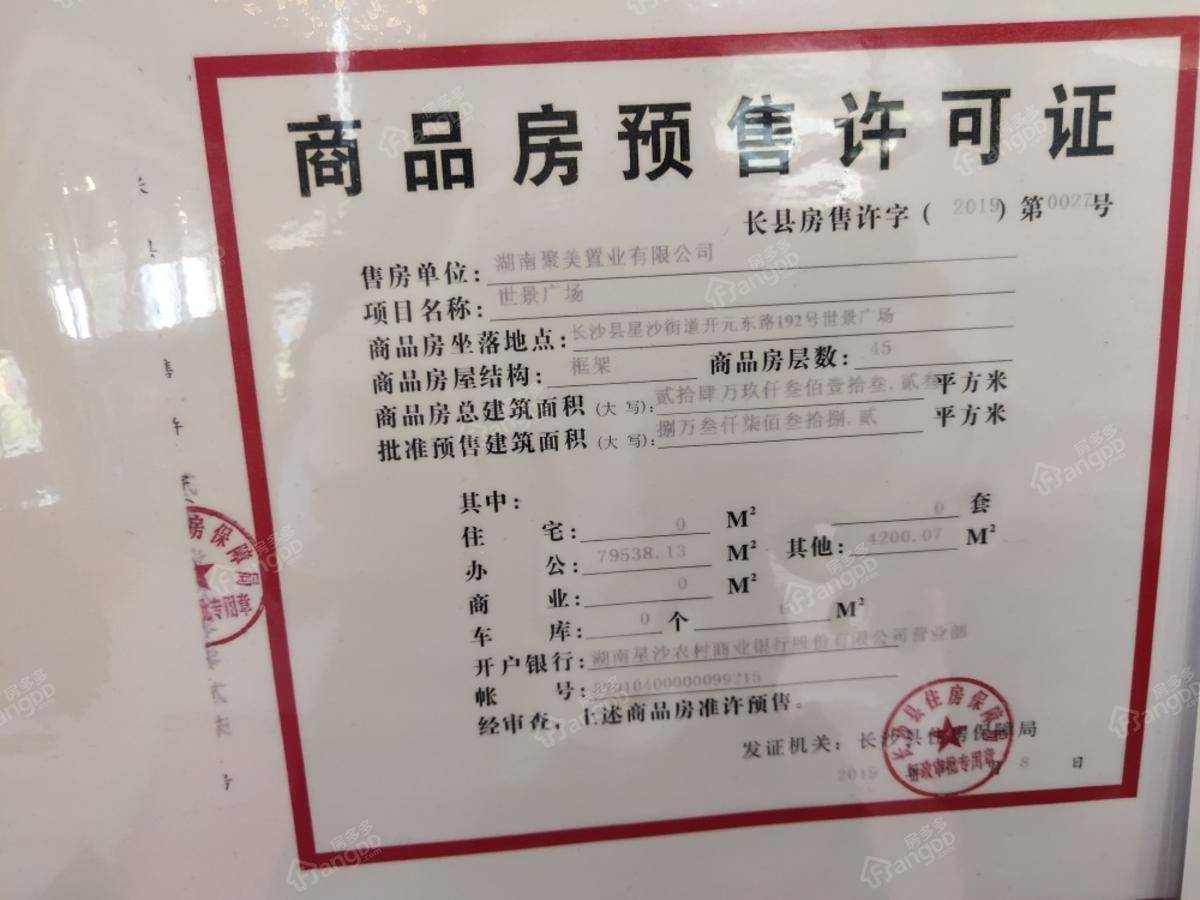 商品房预售许可证
长县房售许字(2019)第0027号
售房单位:湖南聚美置业有限公司
项目名称:世景广场
商品房坐落地点:长沙县星沙街道开元东路192号世景广场
商品房屋结构:框架 商品房层数:45
商品房总建筑面积(大写):贰拾肆万玖仟叁佰壹拾叁.贰叁平方米
批准预售建筑面积(大写):捌万叁仟柒佰叁拾捌.贰 平方米
其中:
住宅:0 M² 0 套
办公:79538.13 M² 其他:4200.07 M²
商业:0 M²
车库:0 个 M²
开户银行:湖南星沙农村商业银行股份有限公司营业部
帐号:
经审查,上述商品房准许预售。
发证机关:长沙县住房保障局
2019 年 月 8 日
长沙县住房保障局
行政审批专用章
房保障局
批专用章
房多多
angDD.com